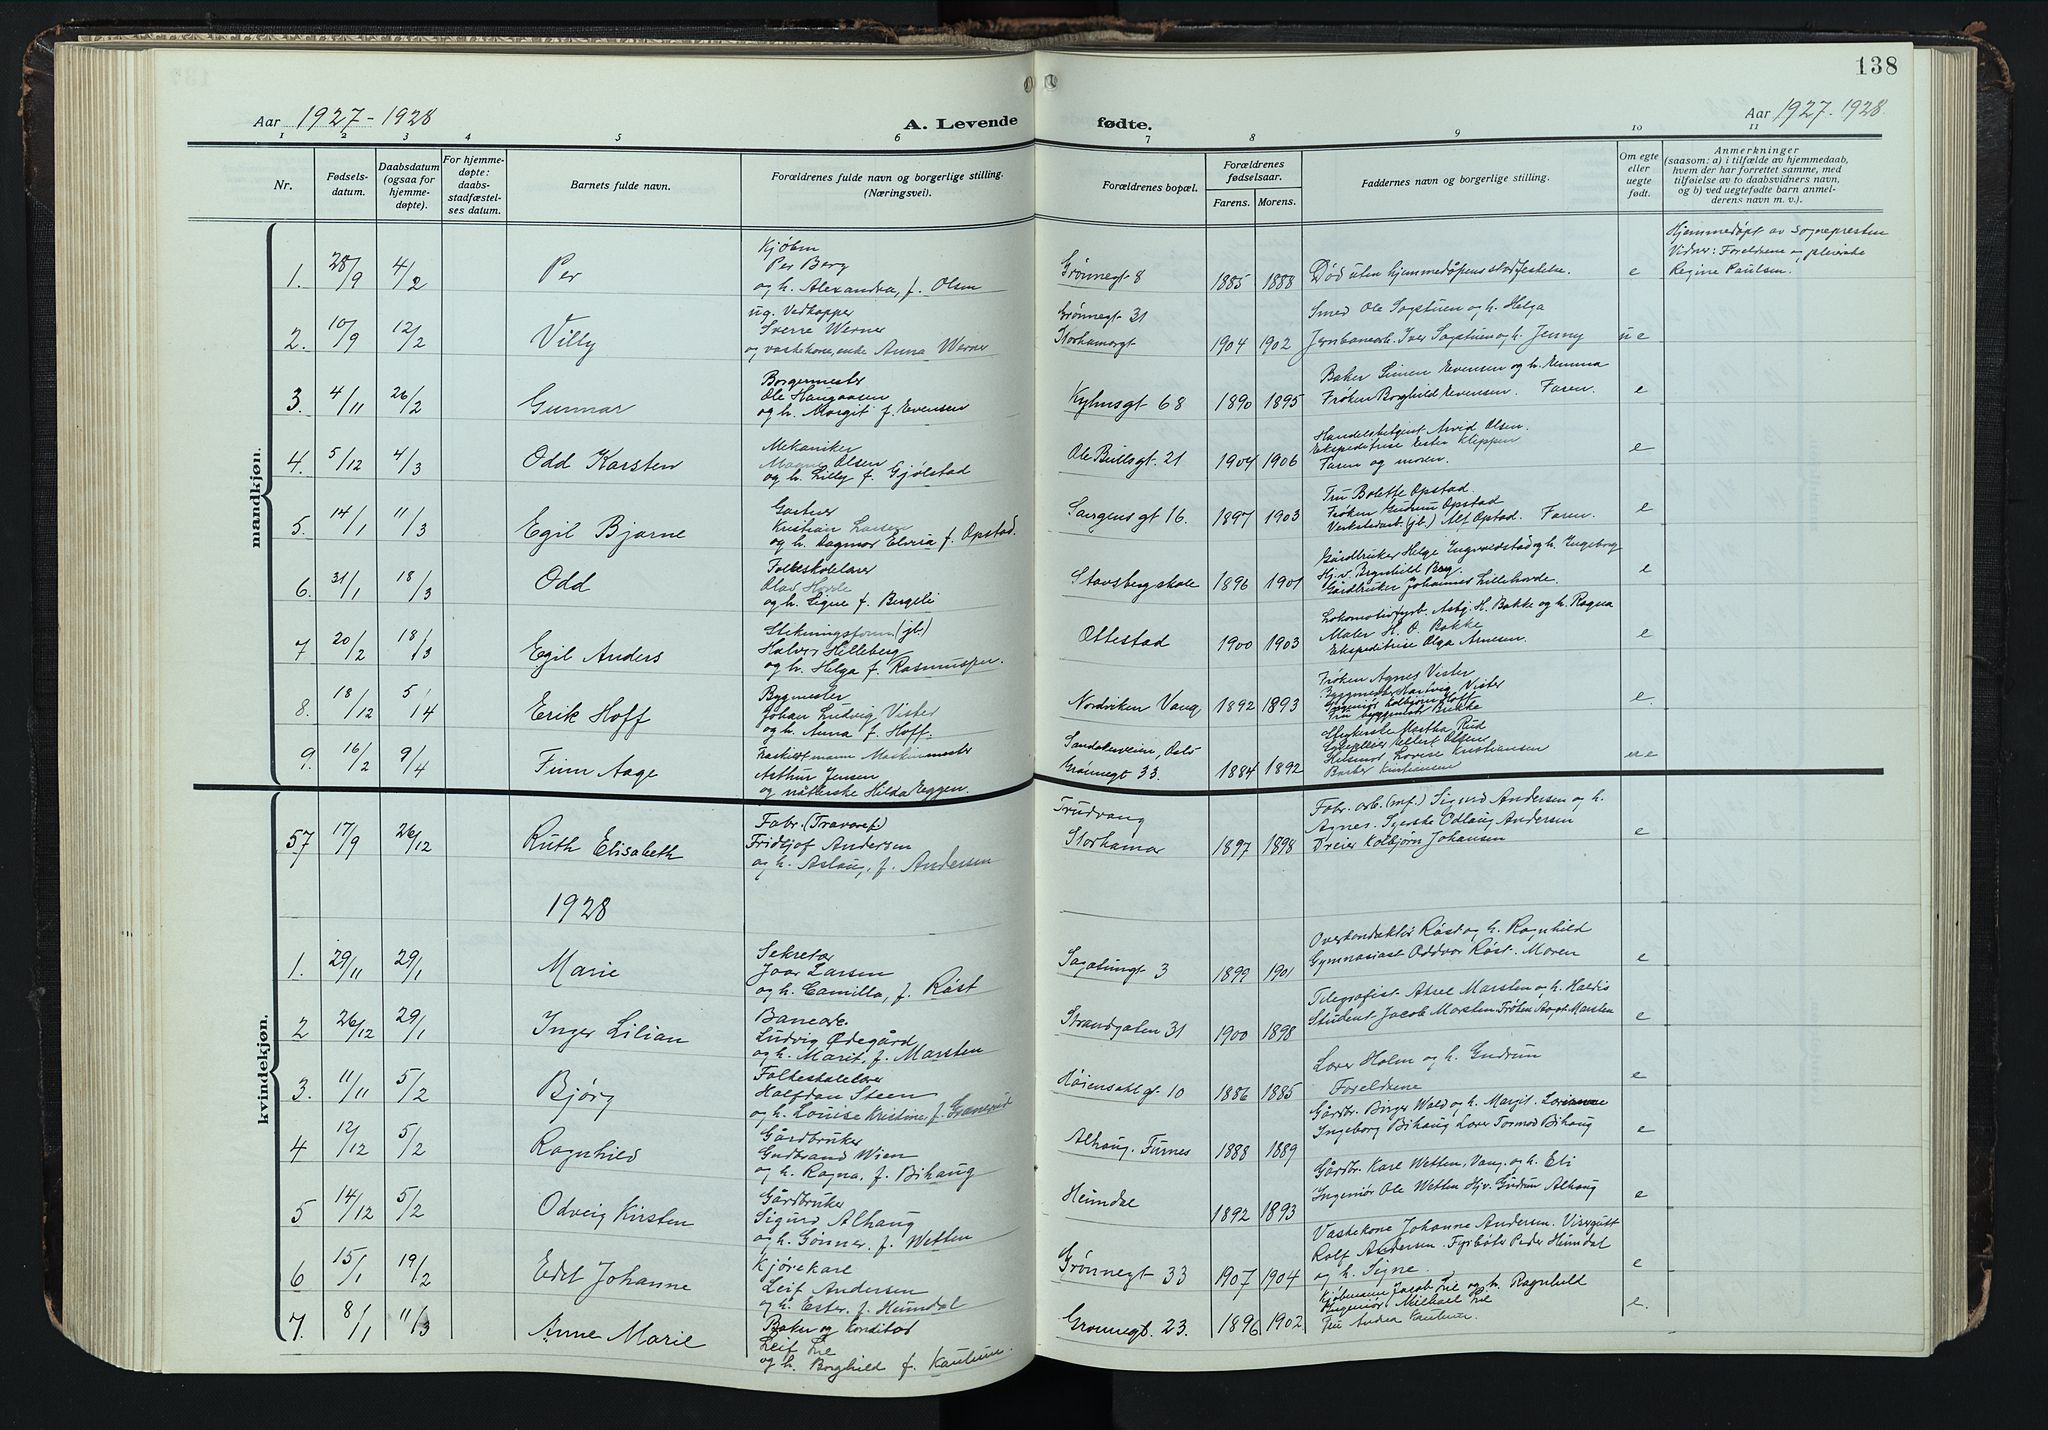 138
Aar 1927-1928
A. Levende fødte.
Aar 1927-1928.
1 2 3 4 5 6 7 8 9 10 11
Nr.
Fødselsdatum.
Daabsdatum (ogsaa for hjemmedøpte).
For hjemmedøpte: daabsstadfæstelses datum.
Barnets fulde navn.
Forældrenes fulde navn og borgerlige stilling. (Næringsvei).
Forældrenes bopæl.
Forældrenes fødselsaar.
Farens. Morens.
Faddernes navn og borgerlige stilling.
Om egte eller uegte født.
Anmerkninger
(saasom: a) i tilfælde av hjemmedaab,
hvem der har forrettet samme, med
tilføielse av to daabsvidners navn,
og b) ved uegtefødte barn anmelderens navn m. v.).
mandkjøn.
1. 28/9 4/2 Per
Kjøbm
Per Berg
og h. Alexandra, f. Olsen
Grønnegt 8 1885 1888 Død uten hjemmedåpens stadfestelse. e
Hjemmedøpt av Sognepresten
Vidner: Foreldrene og pleierske
Regine Paulsen.
2. 10/9 12/2 Villy
ug. Vedhopper
Sverre Werner
og vaskekone, enke Anna Werner
Grønnegt 31
Storhamargt 1904 1902
Smed Ole Sagstuen og h. Helga
Jernbanearb. Iver Sagstuen og h. Jenny ue
3. 4/11 26/2 Gunnar
Borgermester
Ole Haugaasen
og h. Margit f. Evensen
Kyhnsgt 68 1890 1895
Baker Simen Evensen og h. Emma
Frøken Borghild Evensen. Faren. e
4. 5/12 4/3 Odd Karsten
Mekaniker
Magne Olsen
og h. Lilly f. Gjølstad
Ole Bullsgt. 21 1904 1906
Handelsbetjent Arvid Olsen.
Ekspeditrise Ester Kleppen
Faren og moren. e
5. 14/1 11/3 Egil Bjarne
Gartner
Kristian Larsen
og h. Dagmar Elvira f. Opstad.
gt 16. 1897 1903
Fru Bolette Opstad.
Frøken Gudrun Opstad
Verkstedarb. (jb.) Alf Opstad. Faren. e
6. 31/1 18/3 Odd
Folkeskolelærer
Olav Hovde
og h. Signe f. Bergeli
Stavsberg skole 1896 1901
Gårdbruker Helge Ingvaldstad og h. Ingeborg
Hj.v. Brynhild Berg.
Gårdbruker Johannes Lillehovde. e
7 20/2 18/3 Egil Anders
Stikningsform (jb.)
Halvor Hilleberg
og h. Helga f. Rasmussen.
Ottestad 1900 1903
Lokomotivfyrb. Asbj. H. Bakke og h. Ragna
Maler H. O. Bakke
Ekspeditrise Olga Arnesen. e
8. 18/12 5/4 Erik Hoff
Bygmester
Johan Ludvig Vister
og h. Anna f. Hoff.
Nordviken Vang 1892 1893
Frøken Agnes Vister
Byggmester Hartvig Vister
Ingeniør Kolbjørn Hoff
Fru byggmester Bakke e.
9. 16/2 9/4 Finn Aage
Maskinmester
Arthur Jensen
og Hilda Eggen.
Sandakerveien, Oslo
Grønnegt 33. 1884 1892
Martha Rud
Ellert Olsen
Lovise Kristiansen
Barber Kristiansen ue
kvindekjøn.
57 17/9 26/12 Ruth Elisabeth
Fabr. (Travaref)
Fridtjof Andersen
og h. Aslaug, f. Andersen
Trudvang
Storhamar 1897 1898
Fabr. arb. (mf.) Sigurd Andersen og h.
Agnes. Syerske Odlaug Andersen
Dreier Kolbjørn Johansen e
1928
1. 29/11 29/1 Marie
Sekretær
Joar Larsen
og h. Camilla, f. Røst
Sagatungt 3 1899 1901
Overkonduktør Røst og h. Ragnhild
Gymnasiast Oddvar Røst. Moren e
2 26/12 29/1 Inger Lilian
Banearb.
Ludvig Ødegård
og h. Marit, f. Marsten
Strandgaten 31 1900 1898
Telegrafist Aksel Marsten og h. Haldis
Student Jacob Marsten. Frøken Aagot Marsten e
3. 11/11 5/2 Bjørg
Folkeskolelærer
Halfdan Steen
og h. Louise Kristine, f. Granerud
Høiensahl gt 10 1886 1885
Lærer Holm og h. Gudrun
Foreldrene e
4 12/12 5/2 Ragnhild
Gårdbruker
Gudbrand Wien
og h. Ragna, f. Bihaug
Alhaug. Furnes 1888 1889
Gårdbr. Birger Wald og h. Margit.
Ingeborg Bihaug Lærer Tormod Bihaug e
5 14/12 5/2 Odveig Kirsten
Gårdbruker
Sigurd Alhaug
og h. Gunner, f. Wetten
Heimdal 1892 1893
Gårdbr. Karl Wetten, Vang. og h. Eli
Ingeniør Ole Wetten Hjv. Gudrun Alhaug e
6 15/1 19/2 Edel Johanne
Kjørekarl
Leif Andersen
og h. Ester. f. Heimdal
Grønnegt 33 1907 1904
Vaskekone Johanne Andersen. Visergutt
Rolf Andersen. Fyrbøter Peder Heimdal
og h. Signe. e
7. 8/1 11/3 Anne Marie
Baker og Konditor
Leif Lie
og h. Borghild f. Kaulum.
Grønnegt. 23. 1896 1902
Kjøbmann Jacob Lie og h. Ragnhild
Ingeniør Michael Lie
Fru Andrea Kaulum. e.